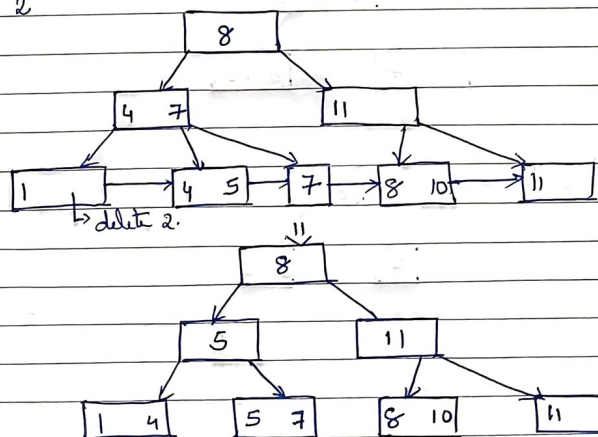 2
8
4 7 11
1 4 5 7 8 10 11
delete 2.
8
5 11
1 4 5 7 8 10 11